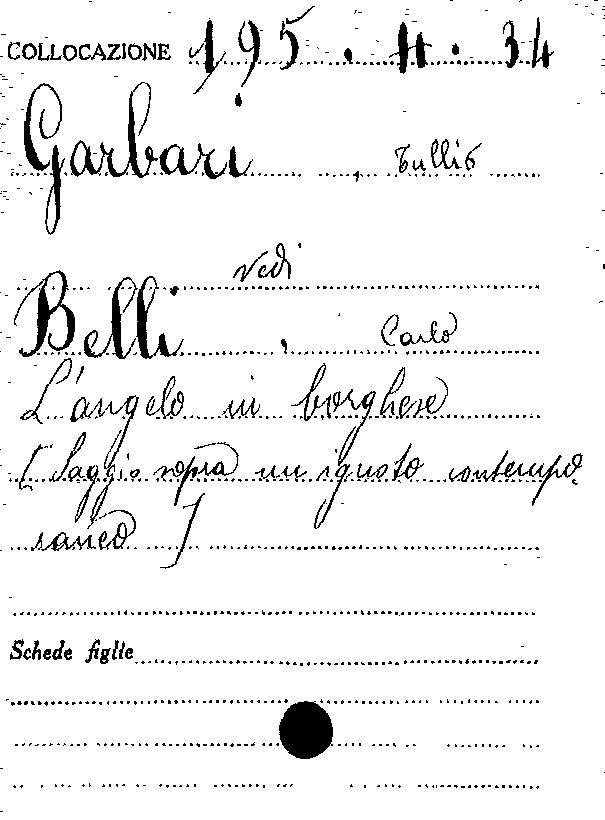 COLLOCAZIONE 195. H. 34
Garbari, Tullio
vedi
Belli, Carlo
L'angelo in borghese
[Saggio sopra un ignoto contempo
raneo]
Schede figlie